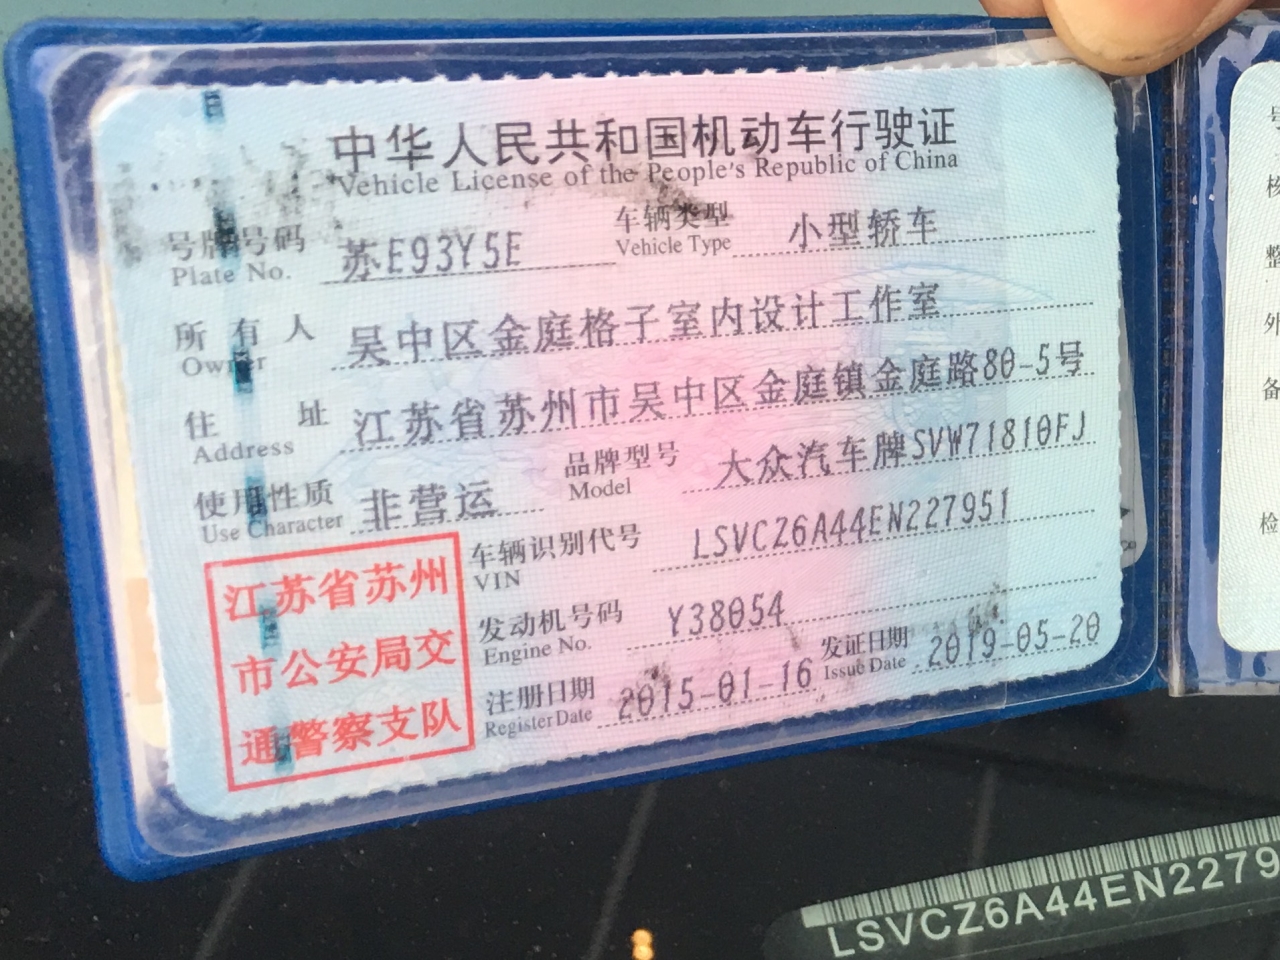 中华人民共和国机动车行驶证
Vehicle License of the People's Republic of China
号牌号码 苏E93Y5E 车辆类型 小型轿车
Plate No. Vehicle Type
所有人 吴中区金庭格子室内设计工作室
Owner
住址 江苏省苏州市吴中区金庭镇金庭路80-5号
Address
使用性质 非营运 品牌型号 大众汽车牌SVW71810FJ
Use Character Model
车辆识别代号 LSVCZ6A44EN227951
VIN
发动机号码 Y38054
Engine No.
注册日期 2015-01-16 发证日期 2019-05-20
Register Date Issue Date
江苏省苏州
市公安局交
通警察支队
号
核
整
外
备
检
LSVCZ6A44EN2279